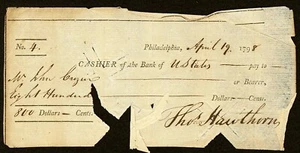 Philadelphia, April 19, 1798
No. 4.
CASHIER of the Bank of U States pay to
Mr John or Bearer,
Eight Hundred Dollars — Cents.
800 Dollars — Cents. Thos. Hawthorn